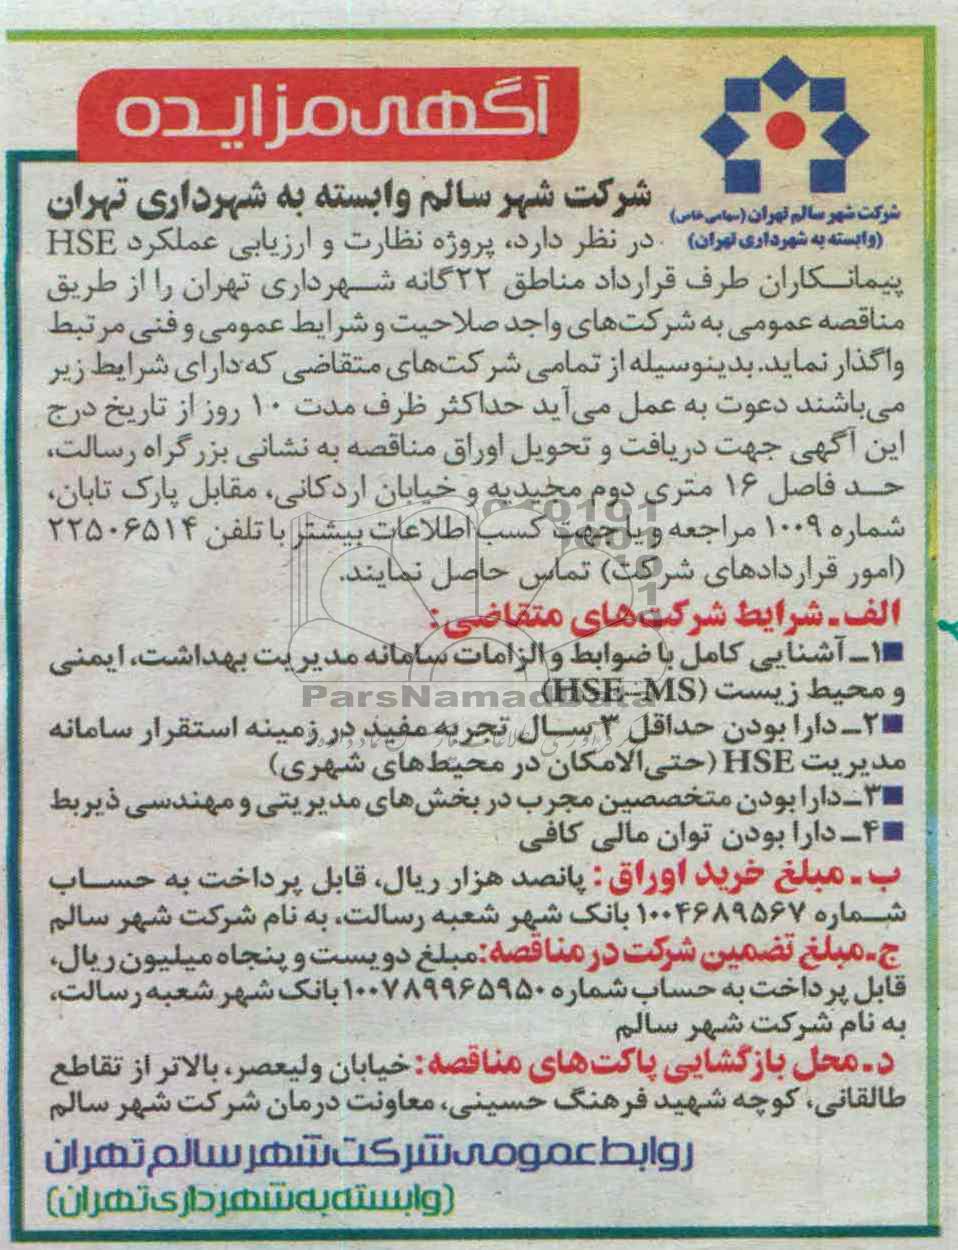 آگهی مزایده
شرکت شهر سالم تهران (سهامی خاص)
(وابسته به شهرداری تهران)
شرکت شهر سالم وابسته به شهرداری تهران
در نظر دارد، پروژه نظارت و ارزیابی عملکرد HSE
پیمانکاران طرف قرارداد مناطق ۲۲گانه شهرداری تهران را از طریق
مناقصه عمومی به شرکت‌های واجد صلاحیت و شرایط عمومی و فنی مرتبط
واگذار نماید. بدینوسیله از تمامی شرکت‌های متقاضی که دارای شرایط زیر
می‌باشند دعوت به عمل می‌آید حداکثر ظرف مدت ۱۰ روز از تاریخ درج
این آگهی جهت دریافت و تحویل اوراق مناقصه به نشانی بزرگراه رسالت،
حد فاصل ۱۶ متری دوم مجیدیه و خیابان اردکانی، مقابل پارک تابان،
شماره ۱۰۰۹ مراجعه و یا جهت کسب اطلاعات بیشتر با تلفن ۲۲۵۰۶۵۱۴
(امور قراردادهای شرکت) تماس حاصل نمایند.
الف ـ شرایط شرکت‌های متقاضی:
۱ـ آشنایی کامل با ضوابط و الزامات سامانه مدیریت بهداشت، ایمنی
و محیط زیست (HSE-MS)
ParsNamadData
۲ـ دارا بودن حداقل ۳ سال تجربه مفید در زمینه استقرار سامانه
مدیریت HSE (حتی‌الامکان در محیط‌های شهری)
۳ـ دارا بودن متخصصین مجرب در بخش‌های مدیریتی و مهندسی ذیربط
۴ـ دارا بودن توان مالی کافی
ب ـ مبلغ خرید اوراق: پانصد هزار ریال، قابل پرداخت به حساب
شماره ۱۰۰۴۶۸۹۵۶۷ بانک شهر شعبه رسالت، به نام شرکت شهر سالم
ج ـ مبلغ تضمین شرکت در مناقصه: مبلغ دویست و پنجاه میلیون ریال،
قابل پرداخت به حساب شماره ۱۰۰۷۸۹۹۶۵۹۵۰ بانک شهر شعبه رسالت،
به نام شرکت شهر سالم
د ـ محل بازگشایی پاکت‌های مناقصه: خیابان ولیعصر، بالاتر از تقاطع
طالقانی، کوچه شهید فرهنگ حسینی، معاونت درمان شرکت شهر سالم
روابط عمومی شرکت شهر سالم تهران
(وابسته به شهرداری تهران)